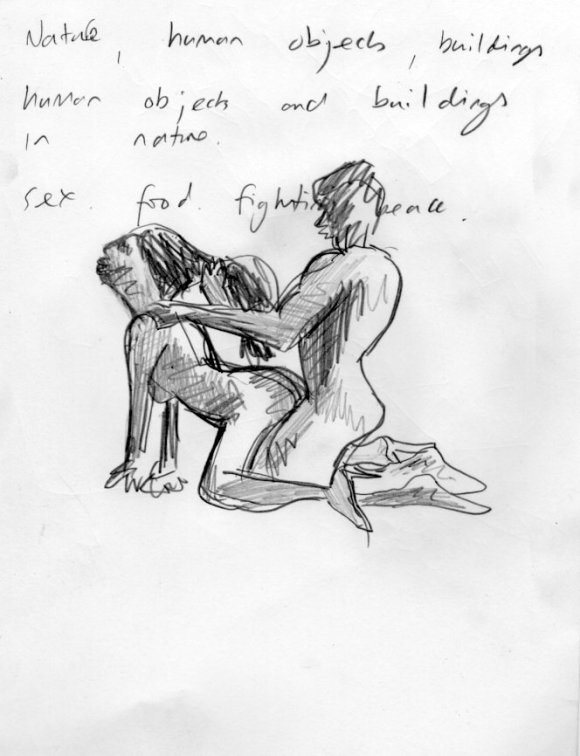 Nature, human objects, buildings
human objects and buildings
in nature.
sex. food. fighting peace.